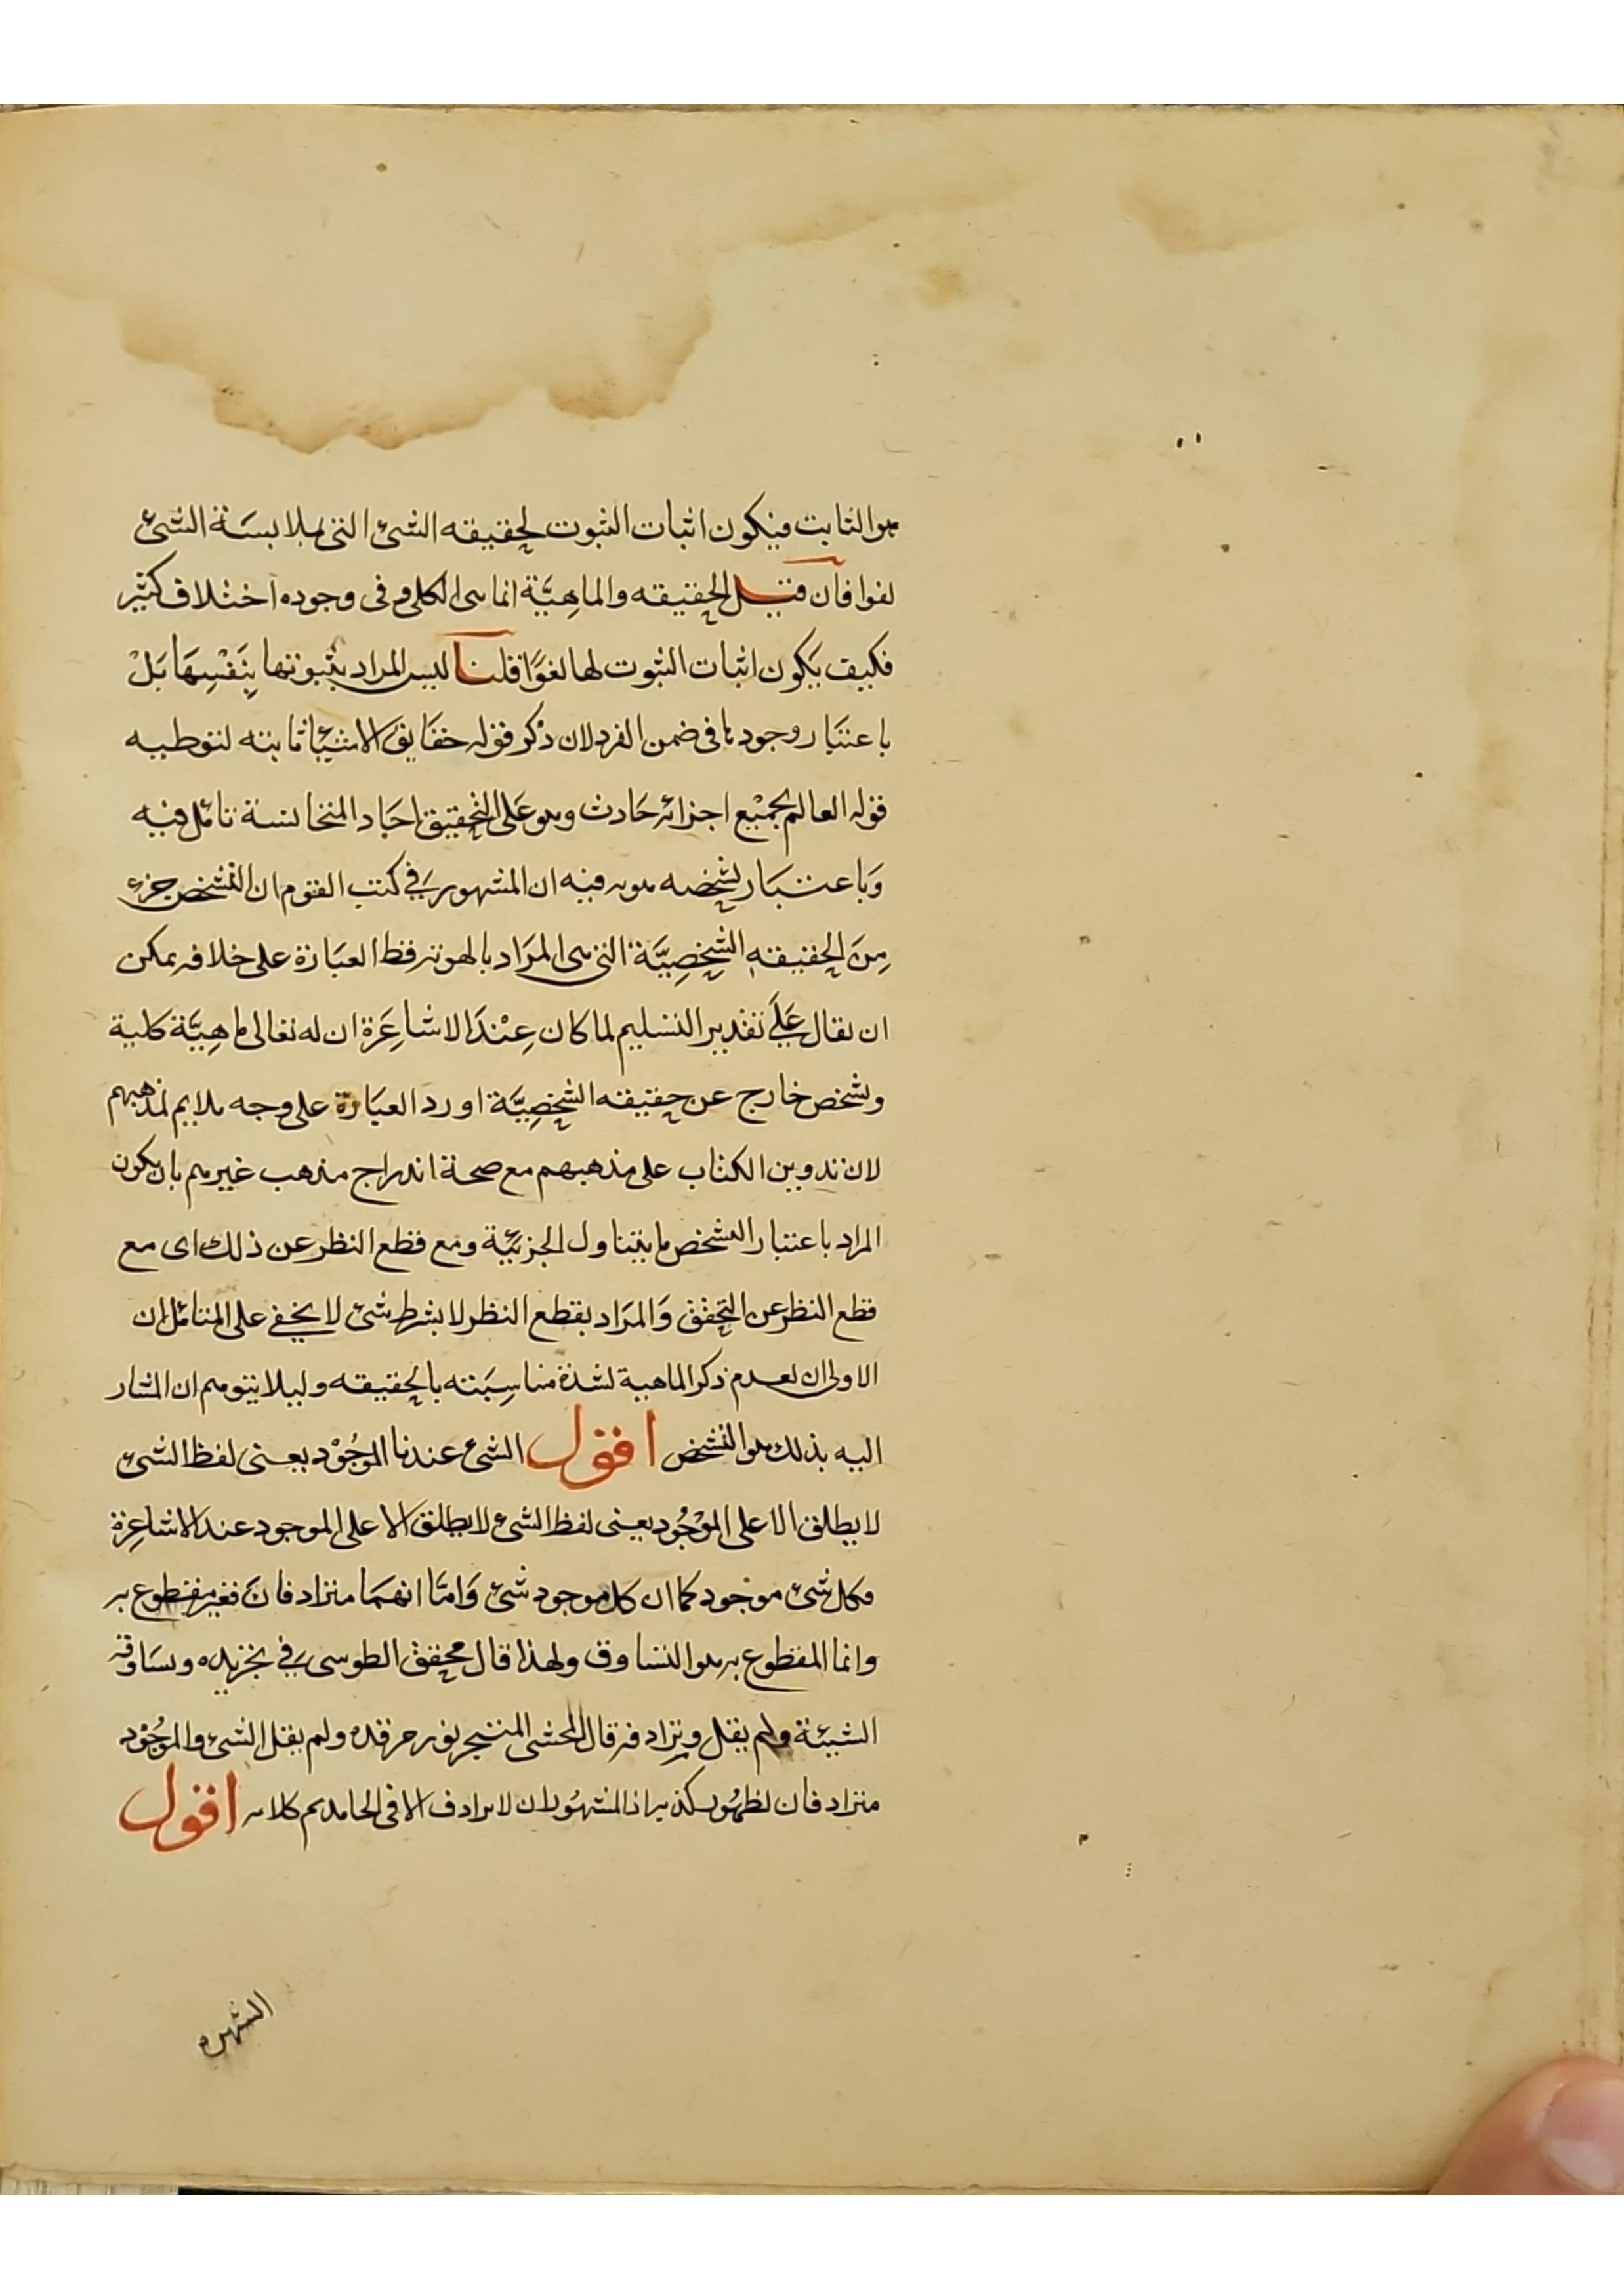 هو الثابت فيكون اثبات الثبوت لحقيقه الشئ التى بملابسَة الشئ
لغوا فان قيل الحقيقه والماهِيَّة انما هى الكلى و فى وجوده اختلاف كثير
فكيف يَكون اثبات الثبوت لها لغوًا قلنا ليس المراد بثبوتها بِنَفْسِهَا بَلْ
باعتبَار وجودها فى ضمن الفرد لان ذكر قوله حقَايق الاشيَا ثابته لتوطيه
قوله العالم بجميْع اجزائه حَادث وهو عَلى التحقيق احَاد المتجانسة تامّل فيه
وَباعتبَار تشخصه هويه فيه ان المشهور فى كتب القوم ان التشخص جزء
مِنَ الحقيقهِ الشخصِيَّة التى هى المرَاد بالهويه فظ العبَارة على خلافه يمكن
ان يقال عَلَى تقدير التسليم لما كان عِنْدَ الاشاعِرَة ان له تعالى ماهِيَّة كلية
وتشخص خارج عن حقيقته الشخصِيَّة اورد العبَارة على وجه ملايم لمذهبهم
لان تدوين الكتاب على مذهبهم مع صحة اندراج مذهب غيرهم بان يكون
المراد باعتبار التشخص ما يتناول الجزئيّة ومع قطع النظر عن ذلك اى مع
قطع النظر عن التحقق وَالمرَاد بقطع النظر لا بشرط شئ لا يخفى على المتامّل ان
الاولى ان يعدم ذكر الماهية لشدة مناسِبَته بالحقيقه وليلا يتوهم ان المشار
اليه بذلك هو التشخص اقول الشئ عندنا الموجُوْد يعنى لفظ الشئ
لا يطلق الا على الموْجُود يعنى لفظ الشئ لا يطلق الا على الموجود عند الاشاعِرة
فكل شئ موجود كما ان كل موجود شئ وَامّا انهمَا مترادفانَ فغير مقطوع به
وانما المقطوع به هو التساوق ولهذا قال محقق الطوسى فى تجريده ويسَاوقه
الشيئة ولم يقل ويرادفه قال المحشى المتبحر نور مرقده ولم يقل الشئ والموجُوْد
مترادفان لظهُور كذبه اذ المشهُور ان لا يرادف الا فى الجامد تم كلامه اقول
الشهره